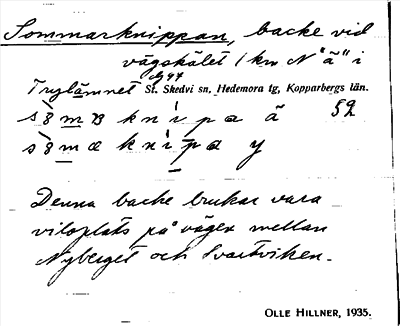 Sommarknippan, backe vid
vägskälet 1 km N "ä" i
Trylämnet St. Skedvi sn, Hedemora tg, Kopparbergs län.
59
Denna backe brukar vara
viloplats på vägen mellan
Nyberget och Svartviken.
OLLE HILLNER, 1935.